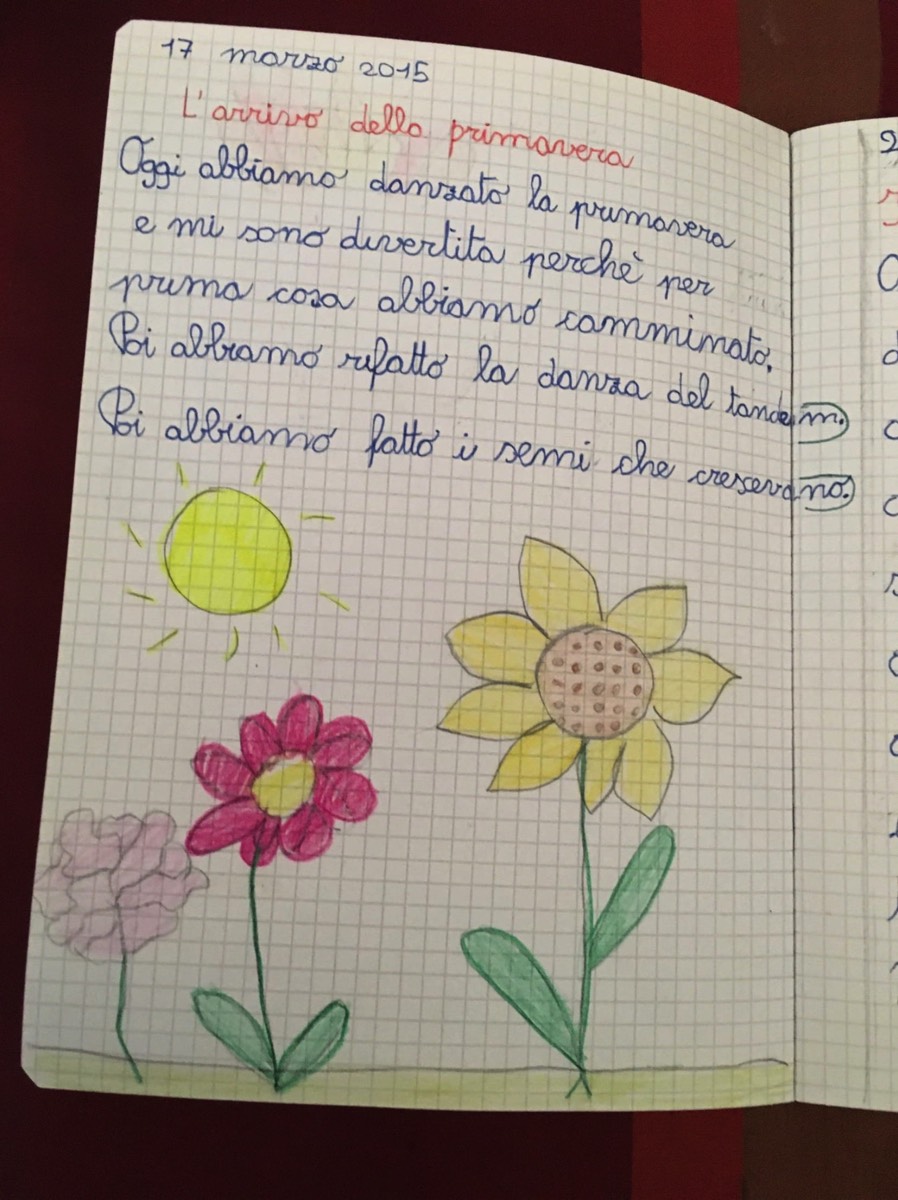 17 marzo 2015
L'arrivo della primavera
Oggi abbiamo danzato la primavera
e mi sono divertita perchè per
prima cosa abbiamo cammimato.
Poi abbiamo rifatto la danza del tandem.
Poi abbiamo fatto i semi che crescevano.